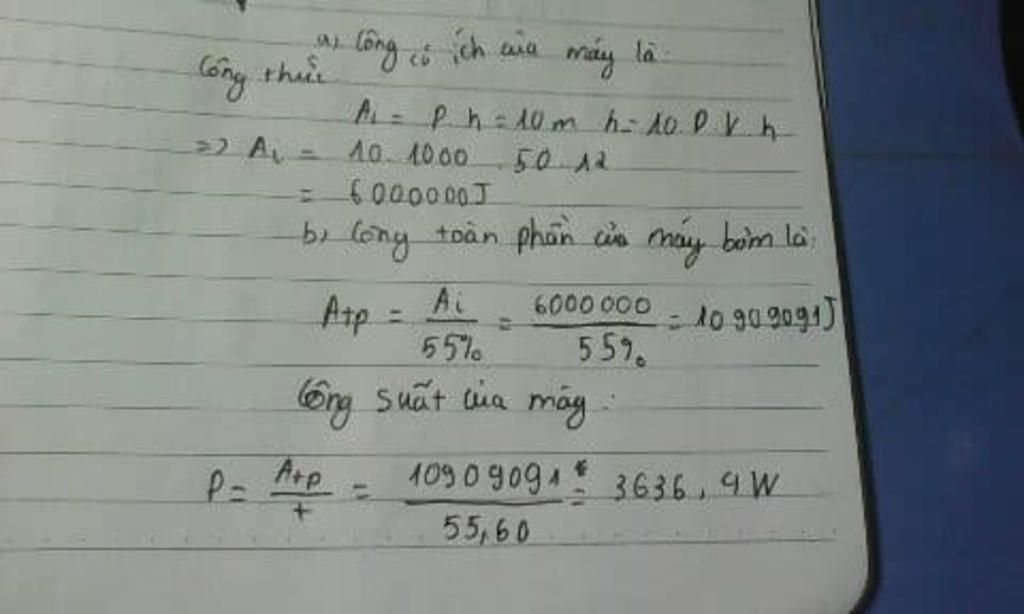 a, Công có ích của máy là:
Công thức
Ai = P h = 10 m h = 10 D V h
=> Ai = 10 . 1000 . 50 . 12
= 6000000J
b, Công toàn phần của máy bơm là:
Atp = Ai / 55% = 6000000 / 55% = 10909091J
Công suất của máy:
P = Atp / t = 10909091 / 55,60 = 3636,4W